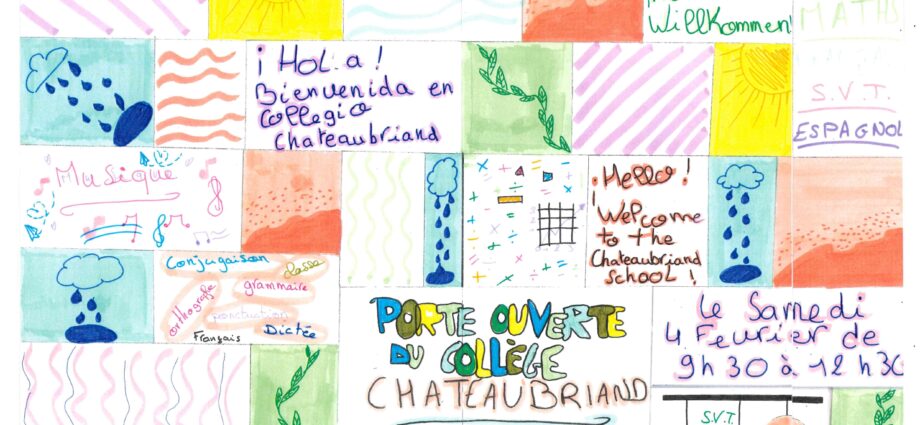 Willkommen!
MATHS
S.V.T.
ESPAGNOL
¡Hola!
Bienvenida en
Collegio
Chateaubriand
Musique
¡Hello!
¡Welcome
to the
Chateaubriand
School!
Conjugaison
classe
grammaire
orthografe
ponctuation
Français
Dictée
PORTE OUVERTE
DU COLLÈGE
CHATEAUBRIAND
Le Samedi
4 Fevrier de
9h30 à 12h30
S.V.T.